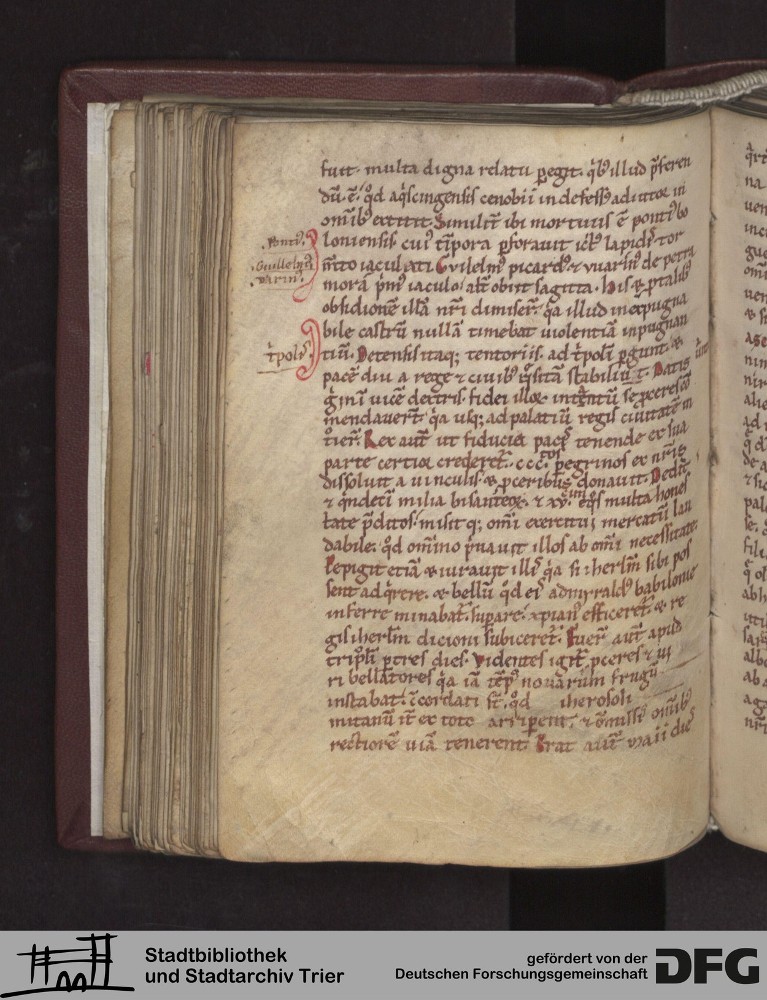 fuit. multa digna relatu ꝑegit. qͥbꝰ illud p̄feren
dū. ē. qd̓ aq̓scingensis cenobii indefessꝰ adiutor in
om̄ibꝰ extitit. Similiꝉ ibi mortuus ē pontiꝰ bo
.Pontiꝰ. loniensis cuiꝰ tīpora ꝑforauit ictꝰ lapidis tor
.Guillelmꝰ m̄to iaculati. Guilelmꝰ picardꝰ & vuarinꝰ de petra
Varinꝰ. mora pͥmꝰ iaculo. alꝉ obiit sagitta. His & ꝑtalibꝰ
obsidionē illā nr̄i dimiser̄. q̓a illud inexpugna
bile castrū nullā timebat uiolentiā inpugnan
t̓polis. tiū. Detensis itaq; tentoriis. ad t̓polī ꝑgunt. &
pacē diu a rege & ciuibꝰ q̓sitā stabiliunt. Datis
mendauerꝉ. q̓a usq; ad palatiū regis ciuitatē in
Rex auꝉ ut fiducia pacis tenende ex sua
parte certior crederet̄. ccc.tos ꝑegrinos ex nr̄is
dissoluit a uinculis. & ꝓceribus donauit. Dedit
& qͥndeci milia bisanteoꝝ. & xv. eqͦs multa hones
tate p̄ditos. misitq; om̄i exercitui mercatū lau
dabile. qd̓ om̄ino pͥuauit illos ab om̄i necessitate.
Pepigit etiā & iurauit illis q̓a si iherlm̄ sibi pos
sent adq̓rere. & bellū qd̓ eis admiraldꝰ babilonie
inferre minabat̄. supare. xpianꝰ efficeret̄. & re
gis iherlm̄ dicioni subiceret̄. Fuer̄ auꝉ apud
tripolī ꝑ tres dies. Videntes igit̄ ꝓceres & ui
ri bellatores q̓a iā tēpꝰ nouarum frugū
instabat. ɔ̄cordati sꝉ. qd̓ iherosoli
mitanū iꝉ ex toto arriperent. & omissis om̄ibꝰ
rectiorē uiā tenerent Erat auꝉ maii dies
Stadtbibliothek
und Stadtarchiv Trier
gefördert von der
Deutschen Forschungsgemeinschaft
DFG